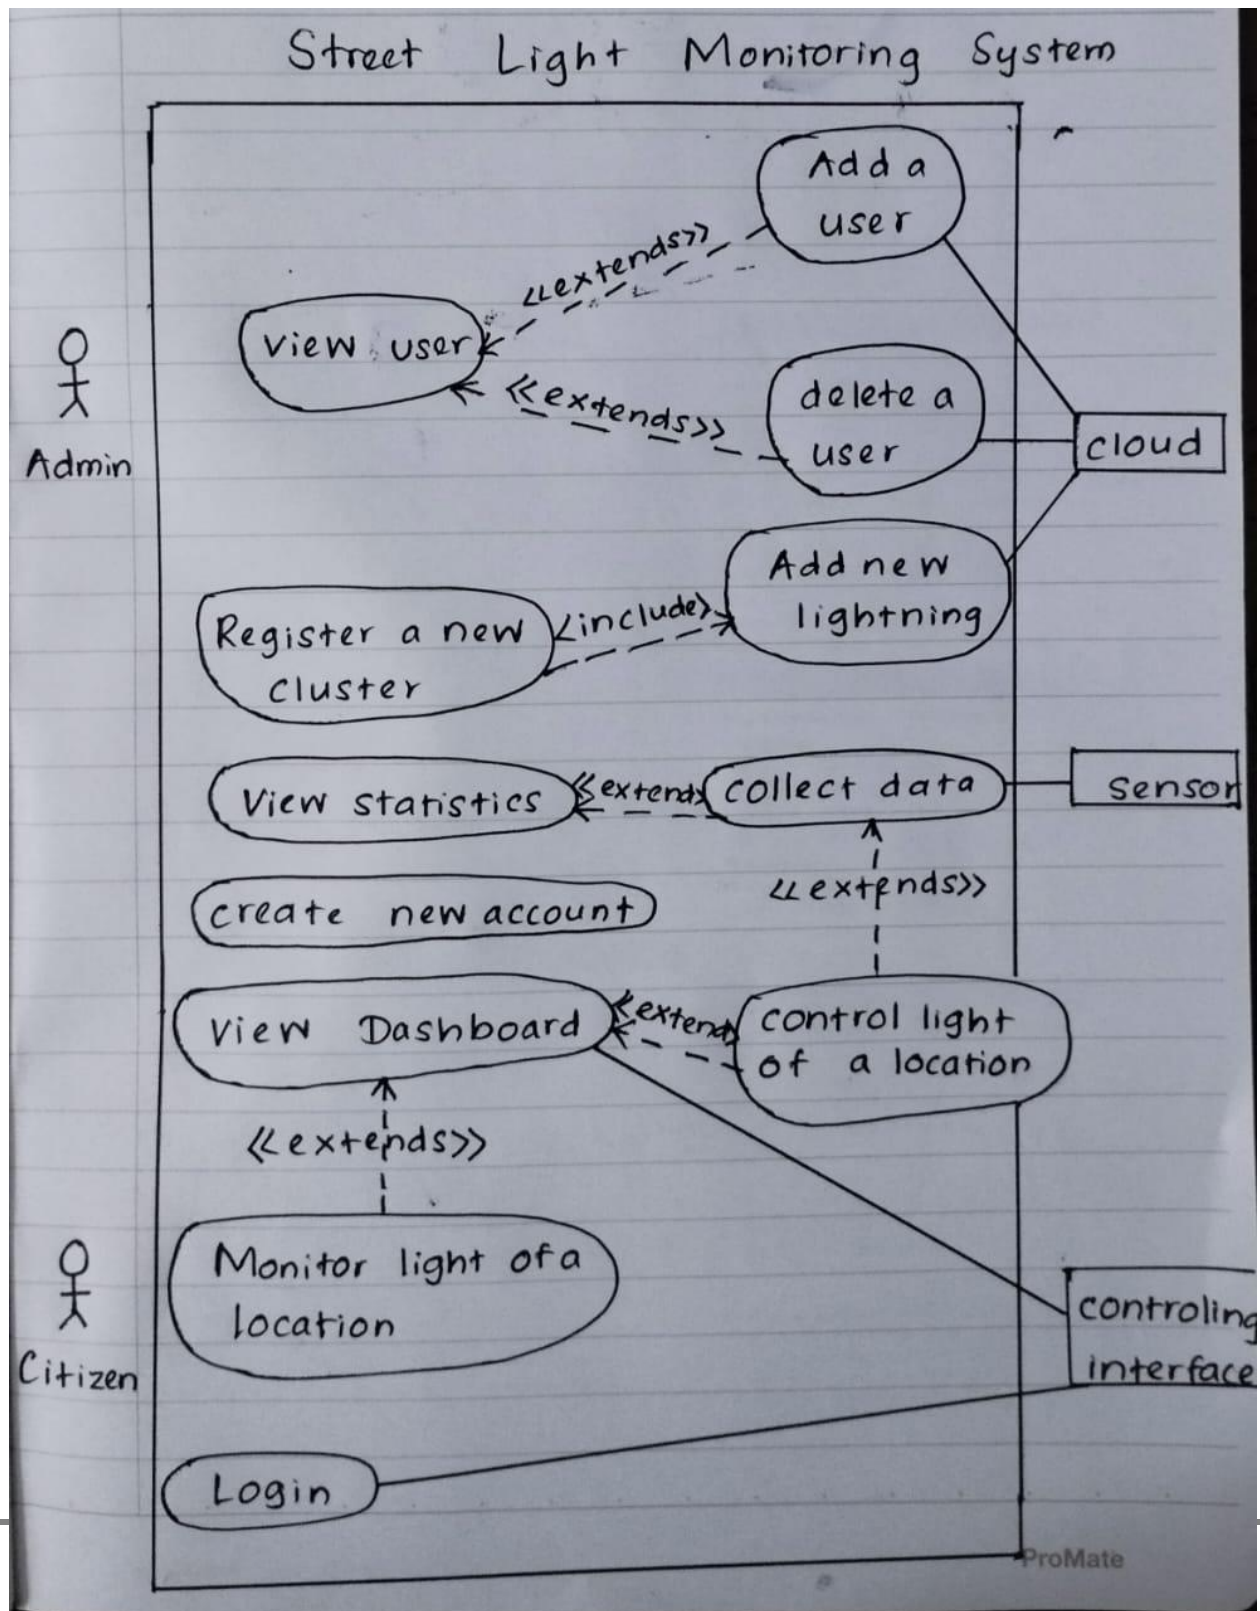 Street Light Monitoring System
Add a
user
<<extends>>
View user
<<extends>>
delete a
user
cloud
Admin
Add new
lightning
<include>
Register a new
cluster
View statistics
<<extends
collect data
sensor
<<extends>>
create new account
View Dashboard
<<extends
control light
of a location
<<extends>>
Monitor light of a
location
controling
interface
Citizen
Login
ProMate